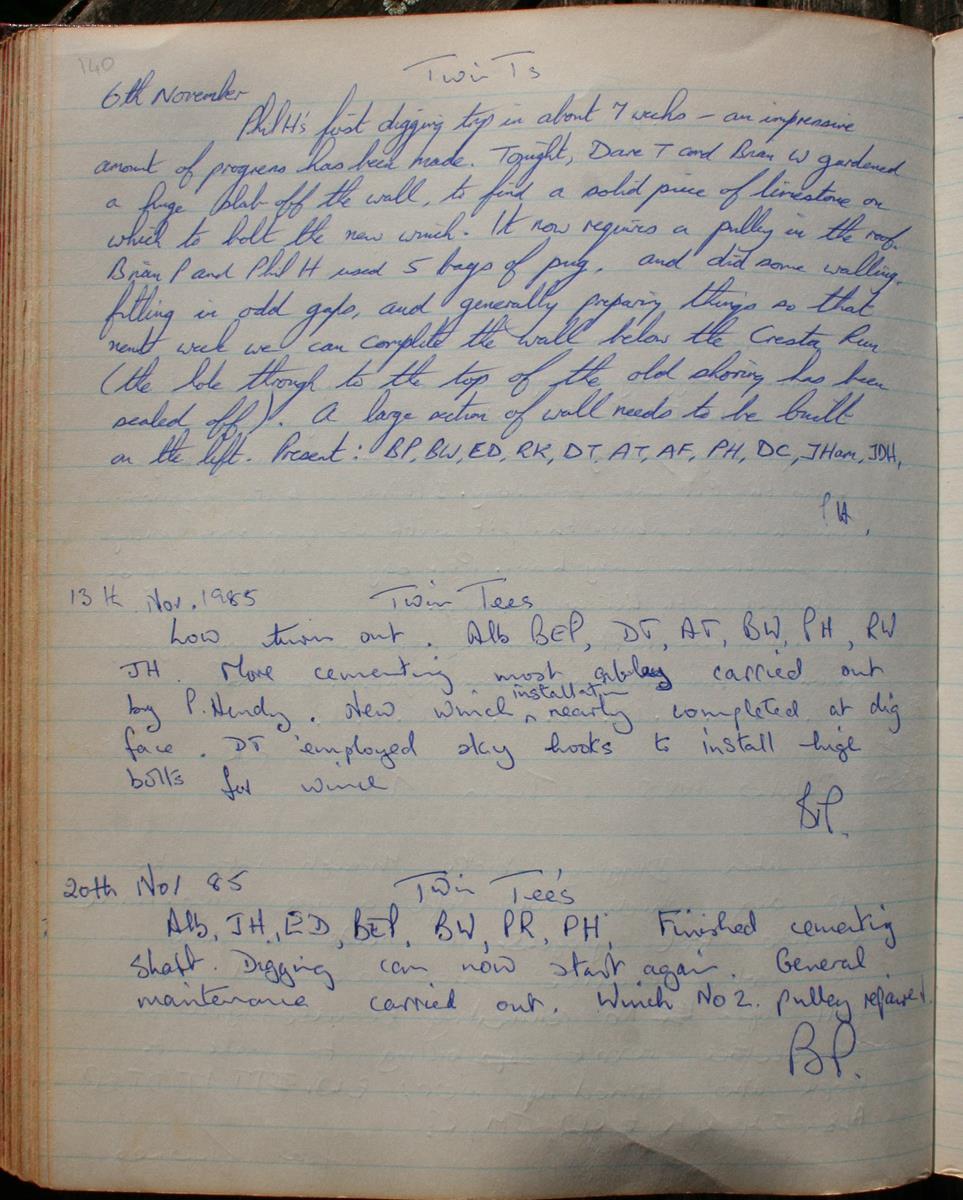 140
Twin Ts
6th November
Phil H's first digging trip in about 7 weeks - an impressive
amount of progress has been made. Tonight, Dave T and Brian W gardened
a huge slab off the wall, to find a solid piece of limestone on
which to bolt the new winch. It now requires a pulley in the roof.
Brian P and Phil H used 5 bags of pug, and did some walling,
filling in odd gaps, and generally preparing things so that
next week we can complete the wall below the Cresta Run
(the hole through to the top of the old shoring has been
sealed off). A large section of wall needs to be built
on the left. Present: BP, BW, ED, RK, DT, AT, AF, PH, DC, JHam, JDH,
PH,
13th Nov. 1985 Twin Tees
Low turn out. Alb BEP, DT, AT, BW, PH, RW
JH. More cementing most carried out
by P. Hendy. New winch installation nearly completed at dig
face. DT employed sky hooks to install high
bolts for winch
BP.
20th Nov 85 Twin Tee's
Alb, JH, ED, BEP, BW, PR, PH, Finished cementing
shaft. Digging can now start again. General
maintenance carried out. Winch No 2. pulley repaired.
BP.